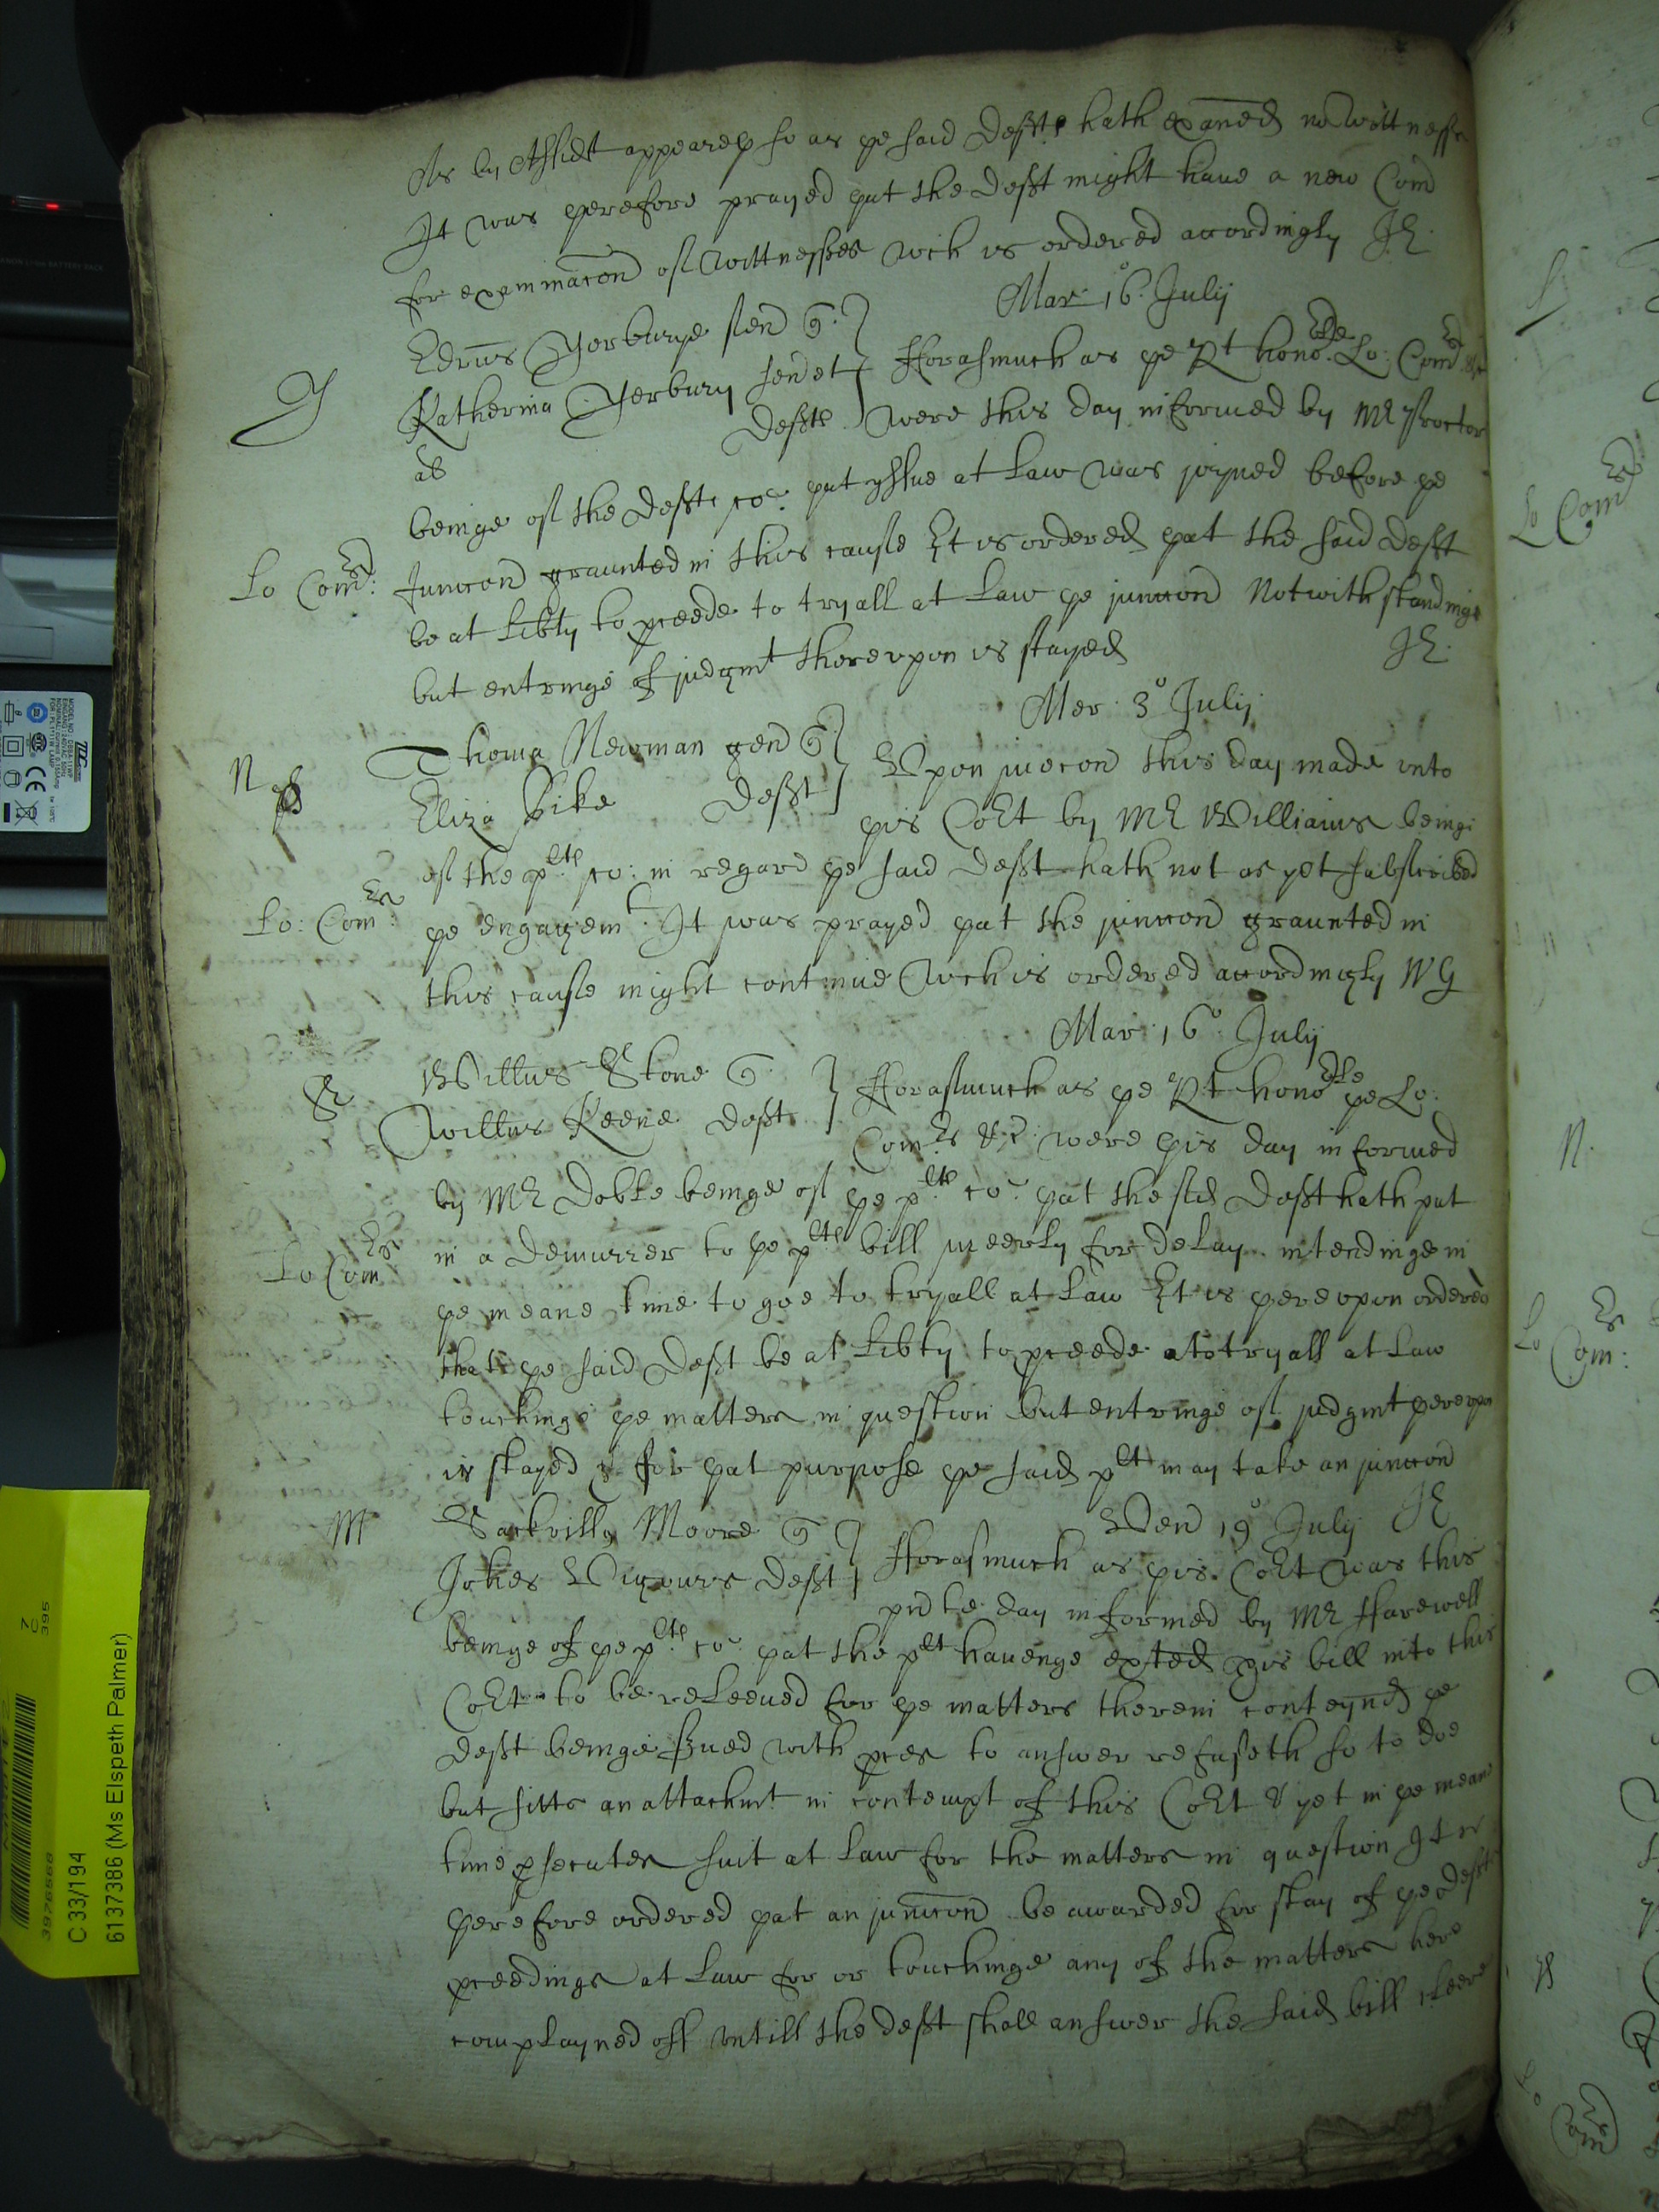 As by Affidt appeareþ so as þe said Defts hath exaned no wittnesse
It was þerefore prayed þat the Deft might haue a new Com̃
for examinac̃on of Wittnesses wch is ordered accordingly JE.
Mar 16º July
Edrũs Yerburye sen Q.
Katherina Yerbury
Defts
Forasmuch as þe Rt honoble Lo: Comrs &c
were this day informed by Mr Proctor
als
Y
beinge of the Defts co: þat yssue at Law was joyned before þe
Lo Comrs:
Juncc̃on graunted in this cause It is ordered þat the said Deft
be at Libty to pceede to tryall at Law þe juncc̃on Notwithstandinge
but entringe of judgmt thereupon is stayed JE.
Mer 3º July
N
Thoma Newman gen Q
Eliza Pike Deft
Upon moc̃on this day made unto
þis Cort by Mr Williams beinge
of the plts co: in regard þe said Deft hath not as yet subscribed
Lo: Comrs:
þe engagemt. It was prayed þat the juncc̃on graunted in
this cause might continue Wch is ordered accordingly WG
Mar 16º July
S
Willus Stone Q
Willus Keene Deft
Forasmuch as þe Rt honoble þe Lo:
Comrs &c were þis day informed
by Mr Doble beinge of þe plts co: þat the sd Deft hath put
Lo Comrs
in a Demurrer to þe plts bill meerly for delay intendinge in
þe meane time to goe to tryall at Law It is þereupon ordered
that þe said Deft be at Libty to pceede to tryall at Law
touchinge þe matters in question but entringe of judgmt þereupon
is stayed & for þat purpose þe said plt may take an juncc̃on
JE
Ven 19º July
M
Sackvilly Moore Q
Johes Vigours Deft
Forasmuch as þis Cort was this
pnte day informed by Mr Harewell
beinge of þe plts co: þat the plt havenge exted his bill into this
Cort to be releeued for þe matters therein conteyned þe
Deft beinge serued with pces to answer refuseth so to doe
but sitts an attachmt in contempt of this Cort & yet in þe meane
time psecutes suit at Law for the matters in question It is
þerefore ordered þat an juncc̃on be awarded for stay of þe Defts
pceedings at Law for or touchinge any of the matters here
complayned off untill the deft shall answer the said bill cleere
Lo Comrs
N.
Lo Comrs:
Lo Comrs
C 33/194
6137386 (Ms Elspeth Palmer)
3976568
395